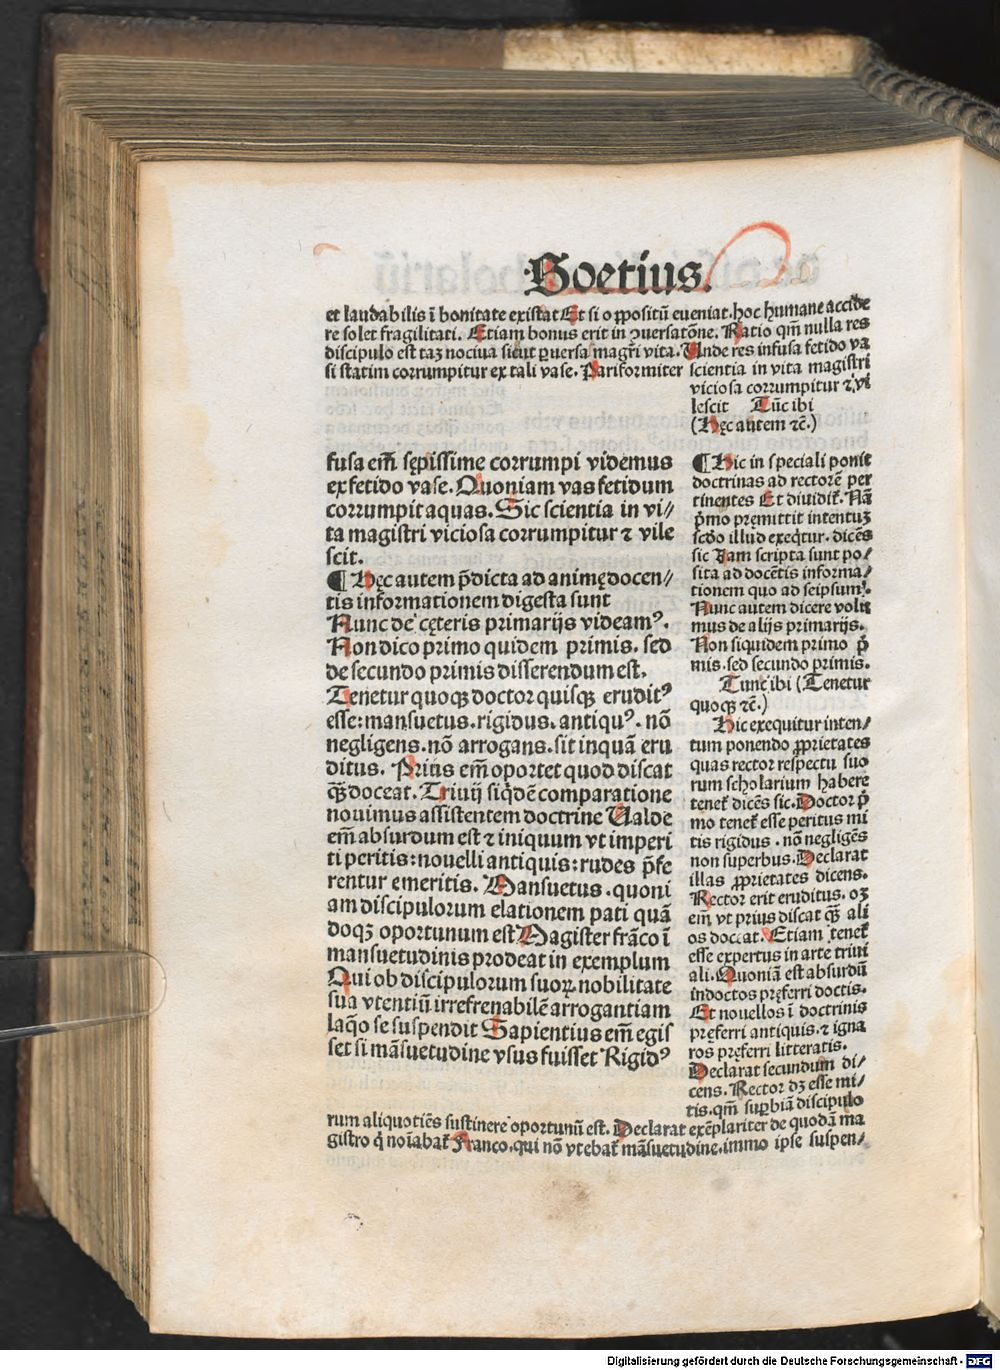 Boetius.
et laudabilis ī bonitate existat Et si o ꝓpositū eueniat. hoc humane accide
re solet fragilitati. Etiam bonus erit in ꝯuersatōne. Ratio qm̄ nulla res
discipulo est taꝫ nociua sicut ꝑuersa magr̄i vita. Unde res infusa fetido va
si statim corrumpitur ex tali vase. Pariformiter scientia in vita magistri
viciosa corrumpitur ⁊ vi
lescit Tūc ibi
(Hęc autem ⁊c̄.)
fusa em̄ sępissime corrumpi videmus
ex fetido vase. Quoniam vas fetidum
corrumpit aquas. Sic scientia in vi//
ta magistri viciosa corrumpitur ⁊ vile
scit.
¶ Hęc autem p̄dicta ad animę docen//
tis informationem digesta sunt
Nunc de cęteris primarijs videamꝰ.
Non dico primo quidem primis. sed
de secundo primis disserendum est.
Tenetur quoqꝫ doctor quisqꝫ eruditꝰ
esse: mansuetus. rigidus. antiquꝰ. nō
negligens. nō arrogans. sit inquā eru
ditus. Prius em̄ oportet quod discat
qꝫ̄ doceat. Triuij siq̄dē comparatione
nouimus assistentem doctrine Ualde
em̄ absurdum est ⁊ iniquum vt imperi
ti peritis: nouelli antiquis: rudes p̄fe
rentur emeritis. Mansuetus. quoni
am discipulorum elationem pati quā
doqꝫ oportunum est Magister frāco ī
mansuetudinis prodeat in exemplum
Qui ob discipulorum suoꝝ nobilitate
sua vtentiū irrefrenabilē arrogantiam
laq̄o se suspendit Sapientius em̄ egis
set si māsuetudine vsus fuisset Rigidꝰ
¶ Hic in speciali ponit
doctrinas ad rectorē per
tinentes Et diuidit̄. Nā
p̄mo pręmittit intentuꝫ
scd̄o illud exeq̄tur. dicēs
sic Iam scripta sunt po/
sita ad docētis informa/
tionem quo ad seipsum.
Nunc autem dicere volu
mus de alijs primarijs.
Non siquidem primo p̄
mis. sed secundo primis.
Tunc ibi (Tenetur
quoqꝫ ⁊c̄.)
Hic exequitur inten/
tum ponendo ꝓprietates
quas rector respectu suo
rum scholarium habere
tenet̄ dicēs sic. Doctor p̄
mo tenet̄ esse peritus mi
tis rigidus. nō negligēs
non superbus. Declarat
illas ꝓprietates dicens.
Rector erit eruditus. oꝫ
em̄ vt prius discat qꝫ̄ ali
os doceat. Etiam tenet̄
esse expertus in arte triui
ali. Quoniā est absurdū
indoctos pręferri doctis.
Et nouellos ī doctrinis
pręferri antiquis. ⁊ igna
ros pręferri litteratis.
Declarat secundum di/
cens. Rector dꝫ esse mi/
tis. qm̄ suꝑbiā discipulo
rum aliquotiēs sustinere oportunū est. Declarat exēplariter de quodā ma
gistro q̄ noīabat̄ Franco. qui nō vtebat̄ māsuetudine. immo ipse suspen/
Digitalisierung gefördert durch die Deutsche Forschungsgemeinschaft - DFG